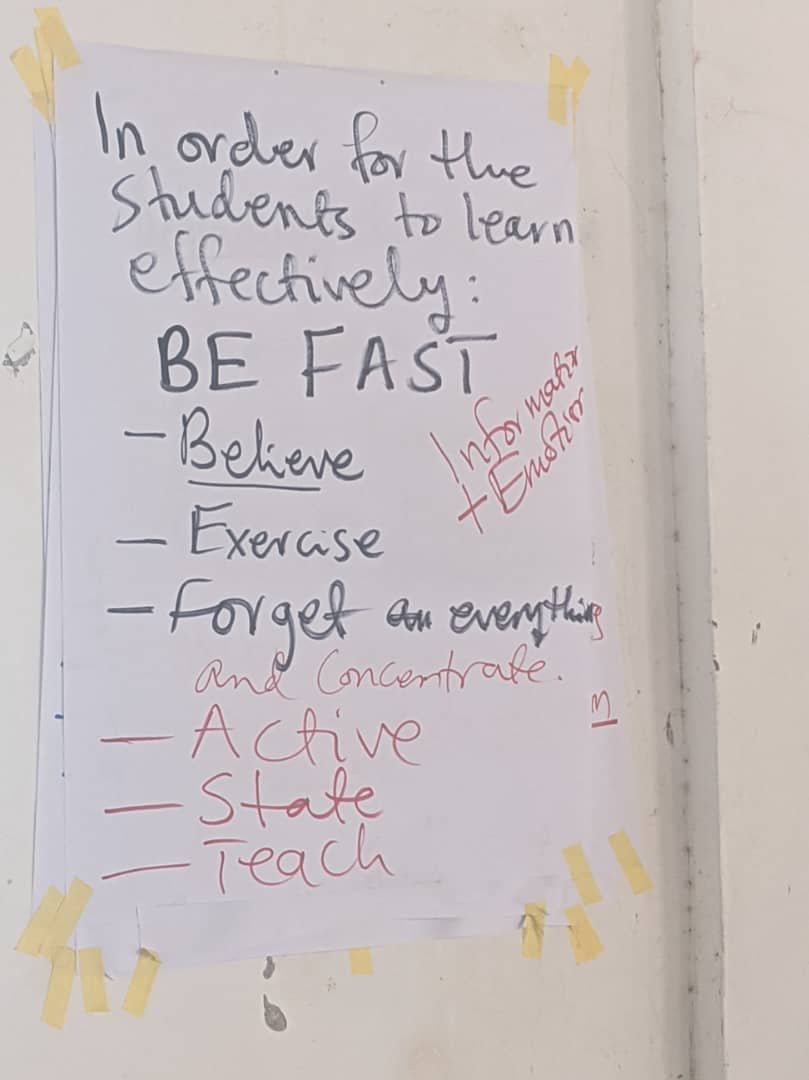 In order for the
Students to learn
effectively:
BE FAST
- Believe
- Exercise
- Forget everything
and Concentrate.
- Active
- State
- Teach
Information
+ Emotion